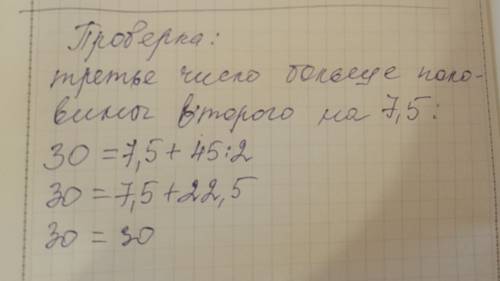 Проверка:
третье число больше поло-
вины второго на 7,5:
30 = 7,5 + 45:2
30 = 7,5 + 22,5
30 = 30